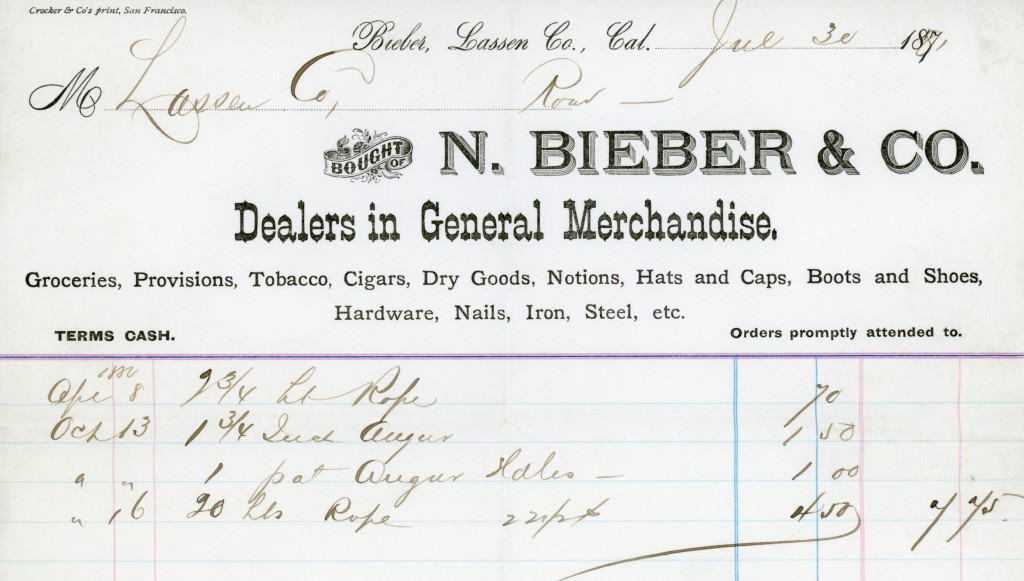 Crocker & Co's print, San Francisco.
Bieber, Lassen Co., Cal. Jul 30 187
M Lassen Co, Road —
BOUGHT OF N. BIEBER & CO.
Dealers in General Merchandise.
Groceries, Provisions, Tobacco, Cigars, Dry Goods, Notions, Hats and Caps, Boots and Shoes,
Hardware, Nails, Iron, Steel, etc.
TERMS CASH. Orders promptly attended to.
Apl 8 2 3/4 lb Rope 70
Oct 13 1 3/4 Inch Augur 1 50
" " 1 pat Augur Hdles — 1 00
" 16 20 lbs Rope 4 50